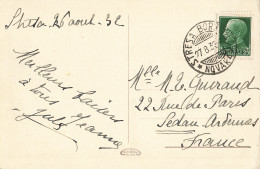 Stresa 26 août 32
Meilleurs baisers
à tous
Jeanne
STRESA BOR
NOVARA
Mlle M. L. Guiraud
22 Rue de Paris
Sedan Ardennes
France